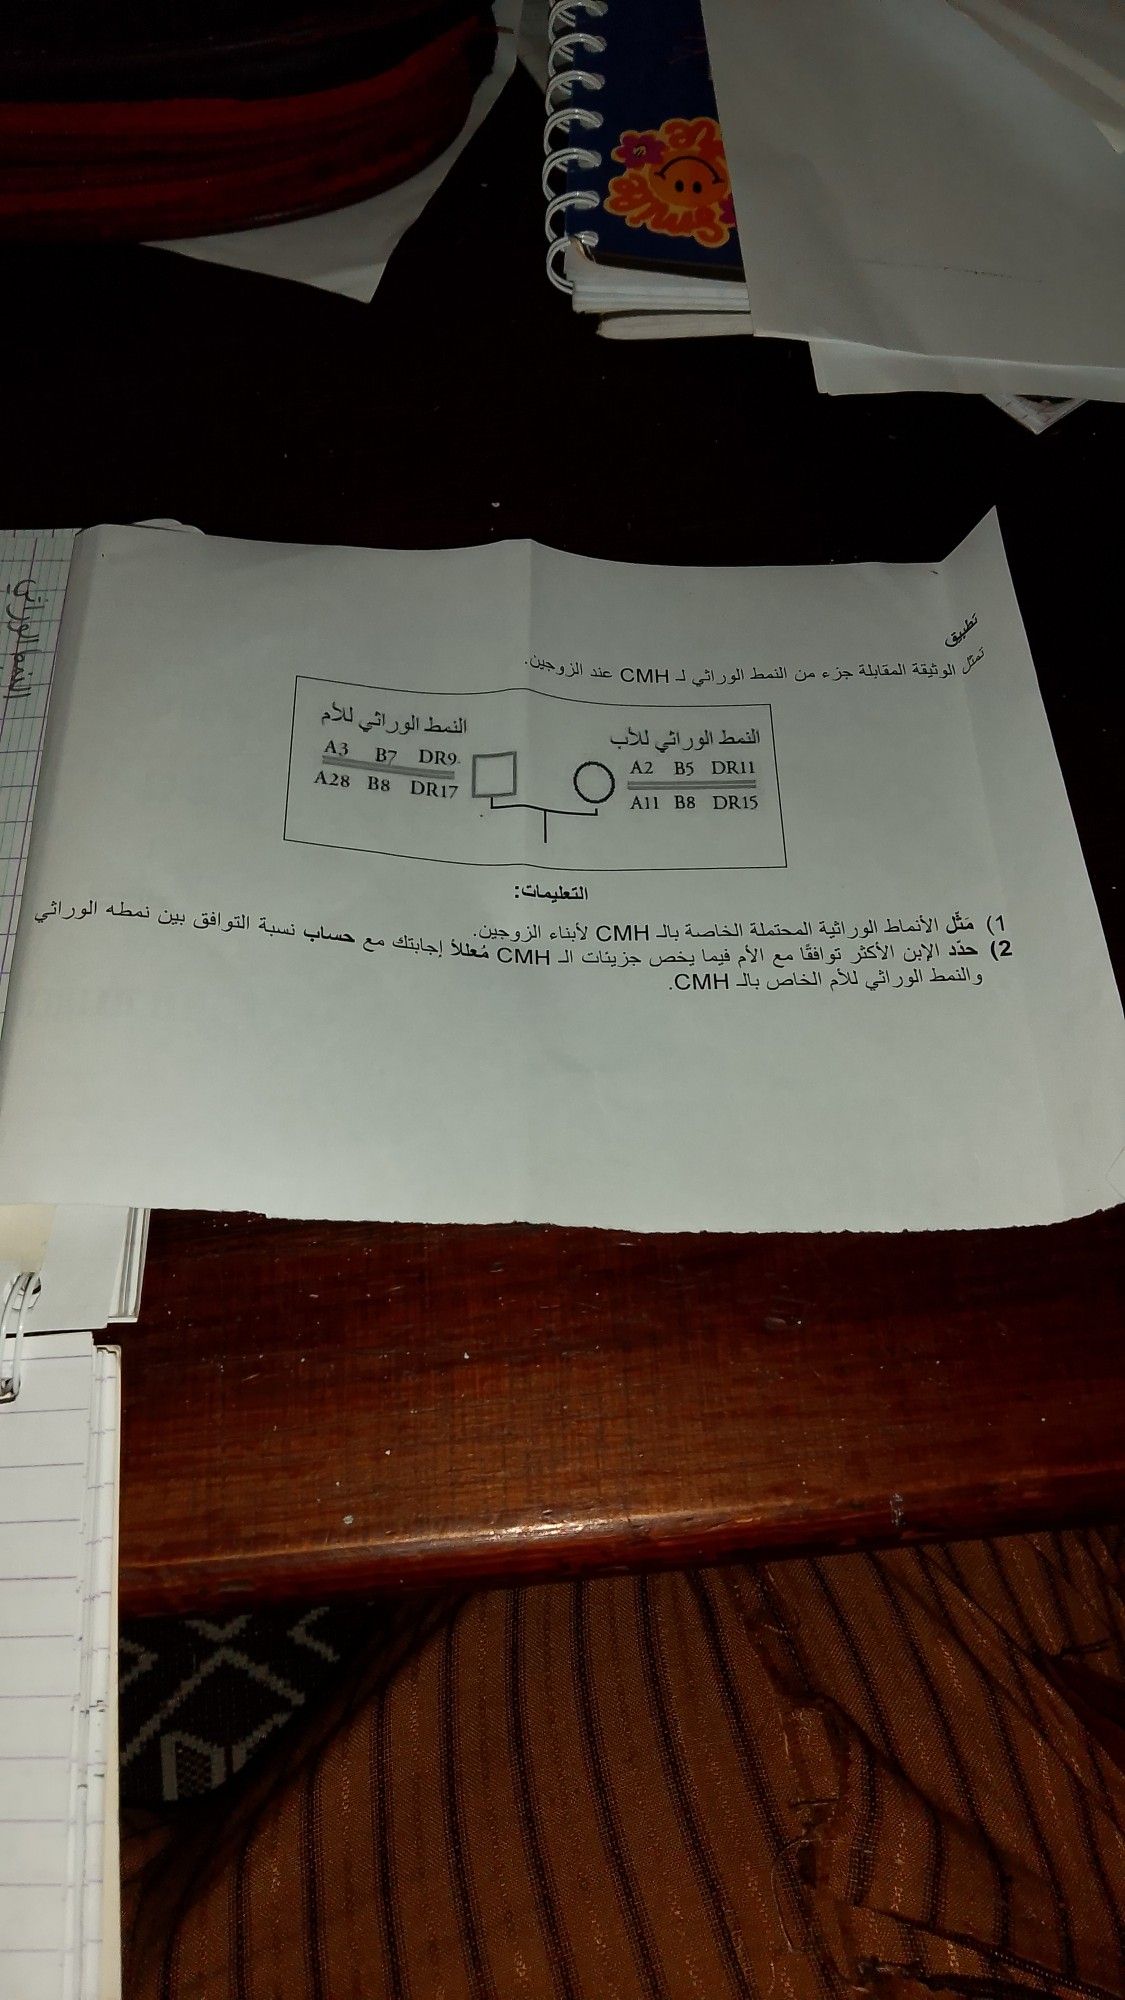 Smile
النمط الوراثي
تطبيق
تمثل الوثيقة المقابلة جزء من النمط الوراثي لـ CMH عند الزوجين.
النمط الوراثي للأب
A2 B5 DR11
A11 B8 DR15
النمط الوراثي للأم
A3 B7 DR9
A28 B8 DR17
التعليمات:
1) مَثّل الأنماط الوراثية المحتملة الخاصة بالـ CMH لأبناء الزوجين.
2) حدّد الإبن الأكثر توافقًا مع الأم فيما يخص جزيئات الـ CMH مُعللاً إجابتك مع حساب نسبة التوافق بين نمطه الوراثي
والنمط الوراثي للأم الخاص بالـ CMH.